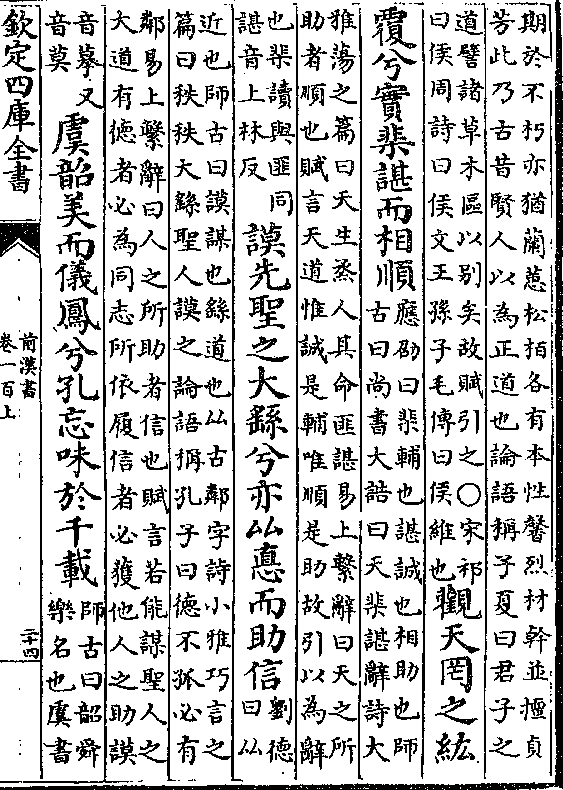 期於不朽亦猶蘭蕙松柏各有本性馨烈材幹並擅貞
芳此乃古昔賢人以為正道也論語稱子夏曰君子之
道譬諸草木區以別矣故賦引之〇宋祁
曰侯周詩曰侯文王孫子毛傳曰侯維也
觀天罔之紘
覆兮實棐諶而相順
應劭曰棐輔也諶誠也相助也師
古曰尚書大誥曰天棐諶辭詩大
雅蕩之篇曰天生烝人其命匪諶易上繫辭曰天之所
助者順也賦言天道惟誠是輔唯順是助故引以為辭
也棐讀與匪同
諶音上林反
謨先聖之大繇兮亦厸惪而助信
劉德
曰厸
近也師古曰謨謀也繇道也厸古鄰字詩小雅巧言之
篇曰秩秩大繇聖人謨之論語稱孔子曰德不孤必有
鄰易上繫辭曰人之所助者信也賦言若能謀聖人之
大道有德者必為同志所依履信者必獲他人之助謨
音摹又
音莫
虞韶美而儀鳳兮孔忘味於千載
師古曰韶舜
樂名也虞書
欽定四庫全書
前漢書
卷一百上
二十四